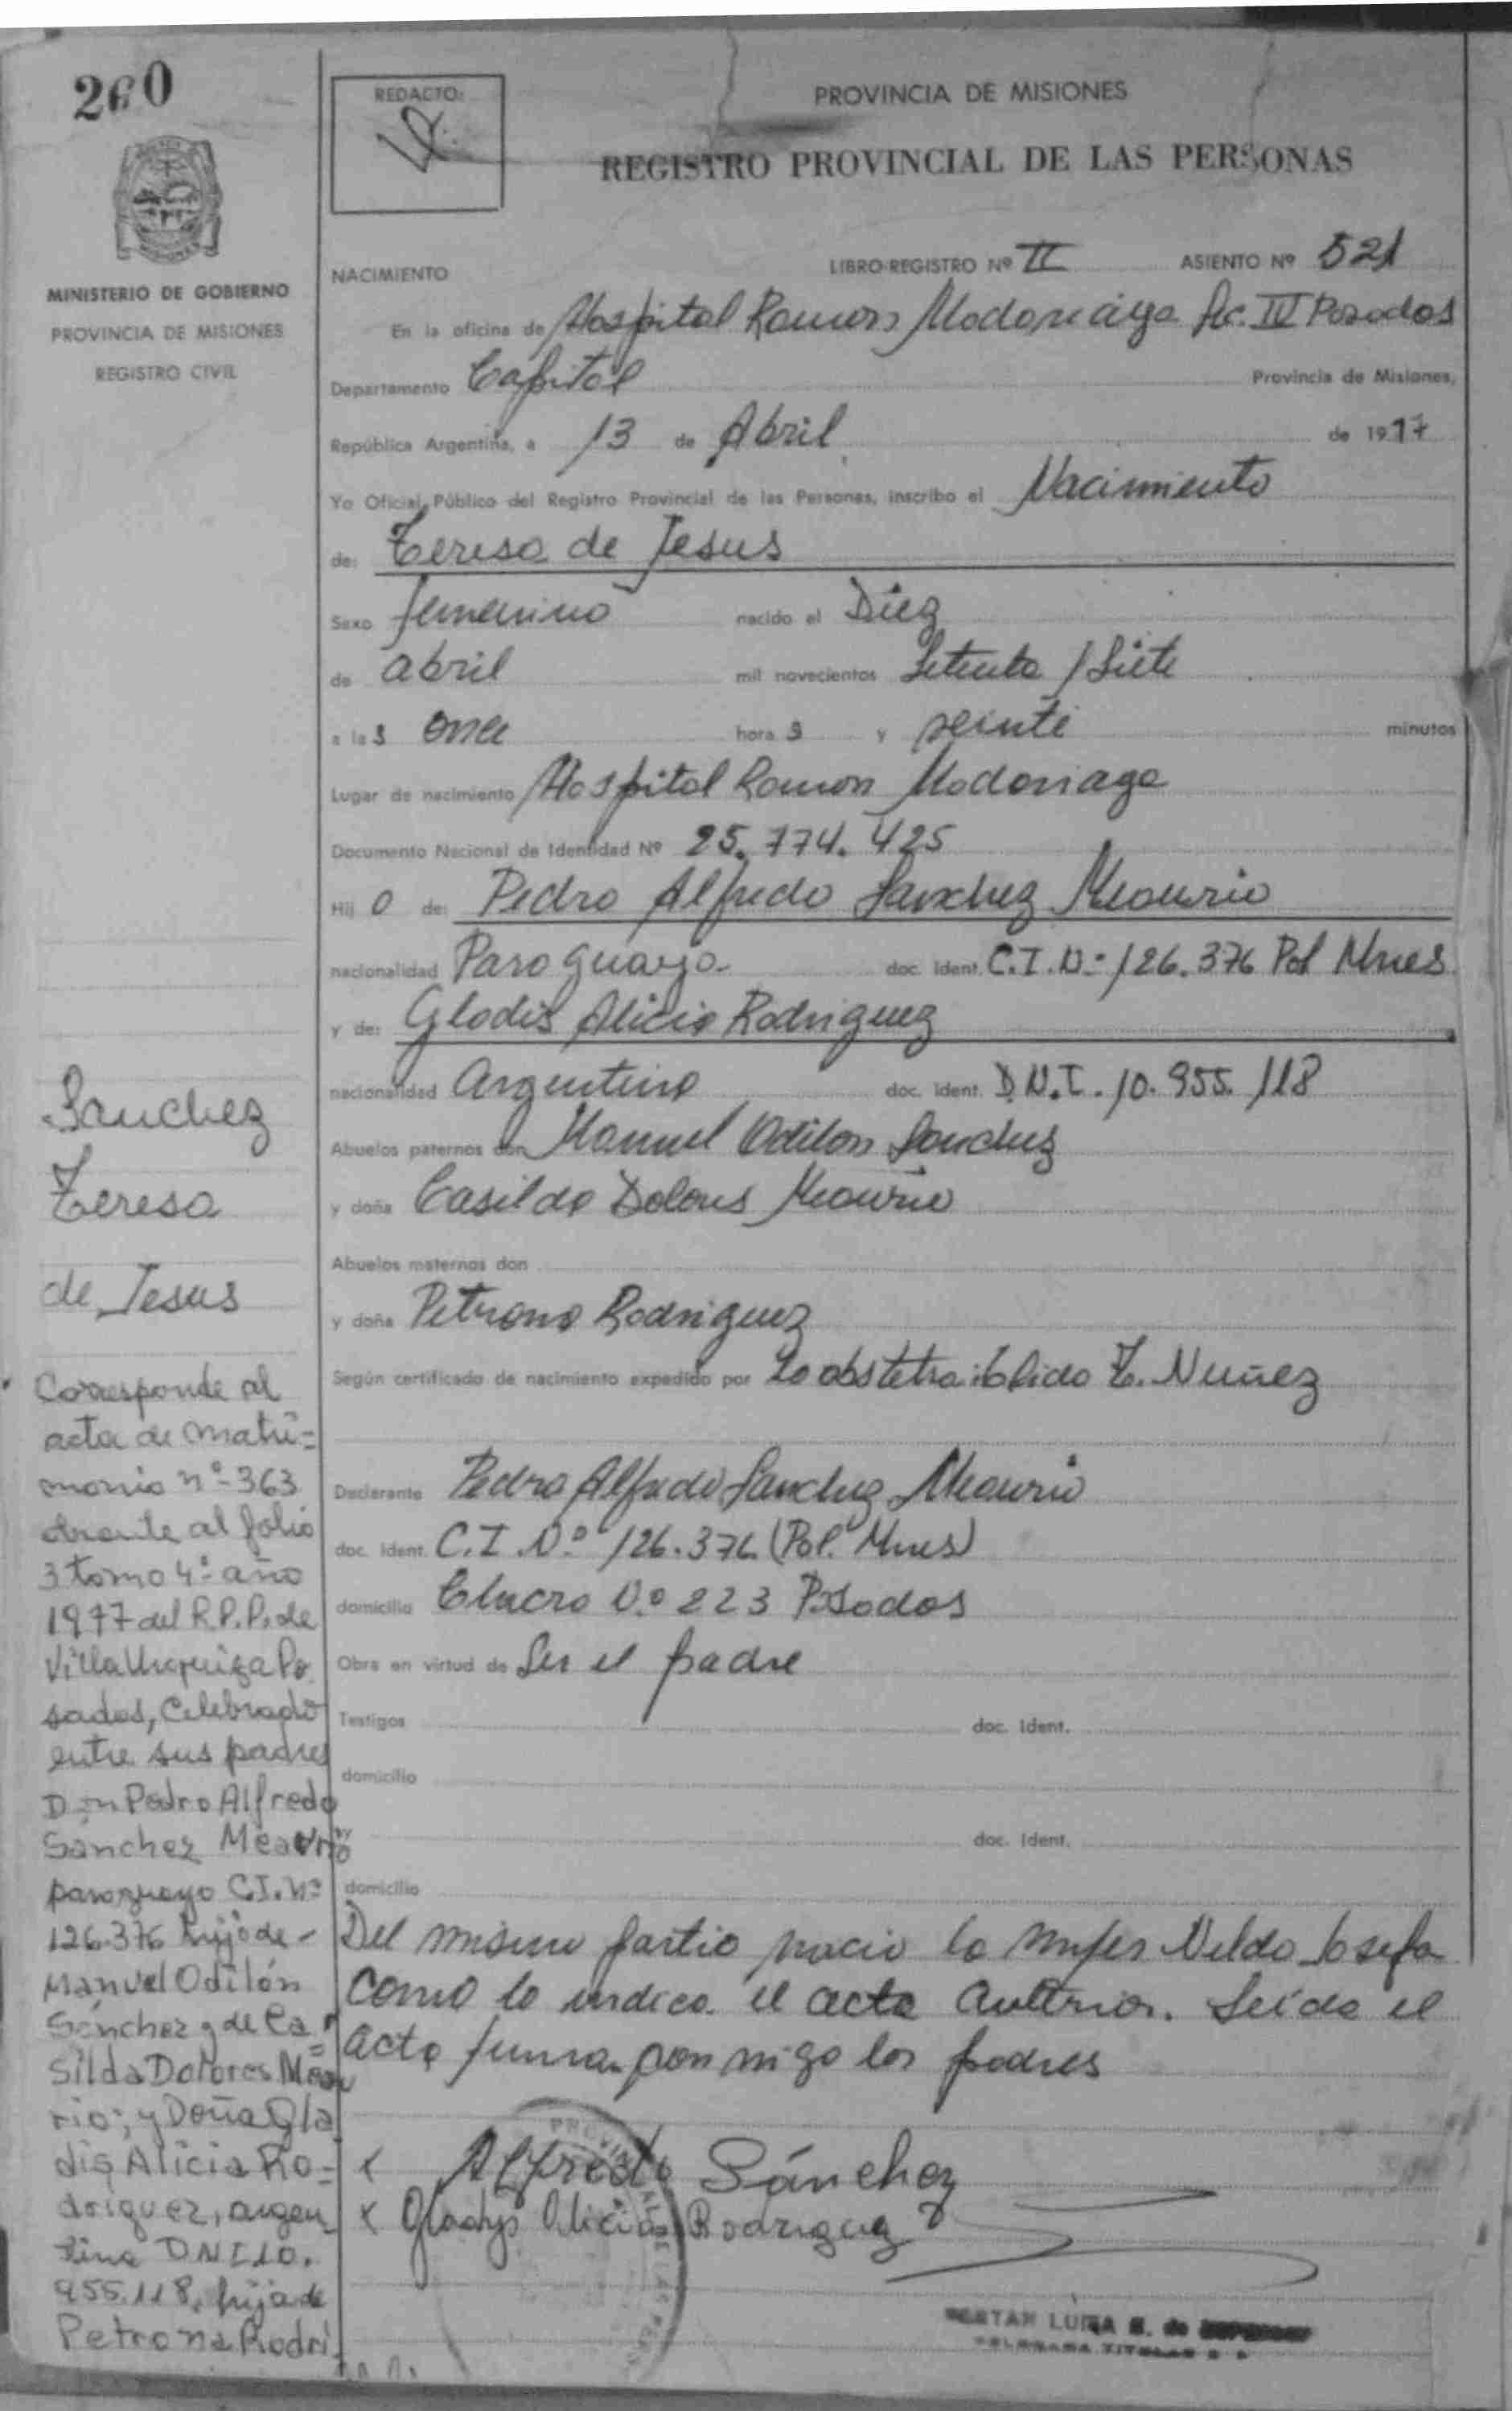 260
MINISTERIO DE GOBIERNO
PROVINCIA DE MISIONES
REGISTRO CIVIL
REDACTO:
PROVINCIA DE MISIONES
REGISTRO PROVINCIAL DE LAS PERSONAS
NACIMIENTO LIBRO-REGISTRO Nº II ASIENTO Nº 521
En la oficina de Hospital Ramon Madariaga Sec. IV Posadas
Departamento Capital Provincia de Misiones,
República Argentina, a 13 de Abril de 1977
Yo Oficial Público del Registro Provincial de las Personas, inscribo el Nacimiento
de: Teresa de Jesus
Sexo femenino nacido el Diez
de abril mil novecientos Setenta / Siete
a las once horas y veinte minutos
Lugar de nacimiento Hospital Ramon Madariaga
Documento Nacional de Identidad Nº 25.774.425
Hij o de: Pedro Alfredo Sanchez Meaurio
nacionalidad Paraguaya doc. Ident. C.I.Nº 126.376 Pol Mnes
y de: Gladis Alicia Rodriguez
nacionalidad Argentina doc. Ident. D.N.I. 10.955.118
Abuelos paternos don Manuel Odilon Sanchez
y doña Casilda Dolores Meaurio
Abuelos maternos don
y doña Petrona Rodriguez
Según certificado de nacimiento expedido por La obstetra: T. Nuñez
Declarante Pedro Alfredo Sanchez Meaurio
doc. Ident. C.I.Nº 126.376 (Pol. Mnes)
domicilio Chacra Nº 223 Posadas
Obra en virtud de Ser el padre
Testigos doc. Ident.
domicilio
doc. Ident.
domicilio
Del mismo partio nacio la mujer Nilda Josefa
como lo indica el acta anterior. Leida el
acta firman con migo los padres
x Alfredo Sánchez
x Gladys Alicia Rodriguez
LUISA
Sanchez
Teresa
de Jesus
Corresponde al
acta de matri=
monio nº 363
obrante al folio
3 tomo 4º año
1977 del R.P.P. de
Villa Urquiza Po
sadas, Celebrado
entre sus padres
Don Pedro Alfredo
Sánchez Meaurio
paraguayo C.I. Nº
126.376 hijo de -
Manuel Odilón
Sánchez y de Ca=
silda Dolores Meau
rio; y Doña Gla
dis Alicia Ro=
driguez, argen
tina DNI 10.
955.118, hija de
Petrona Rodri